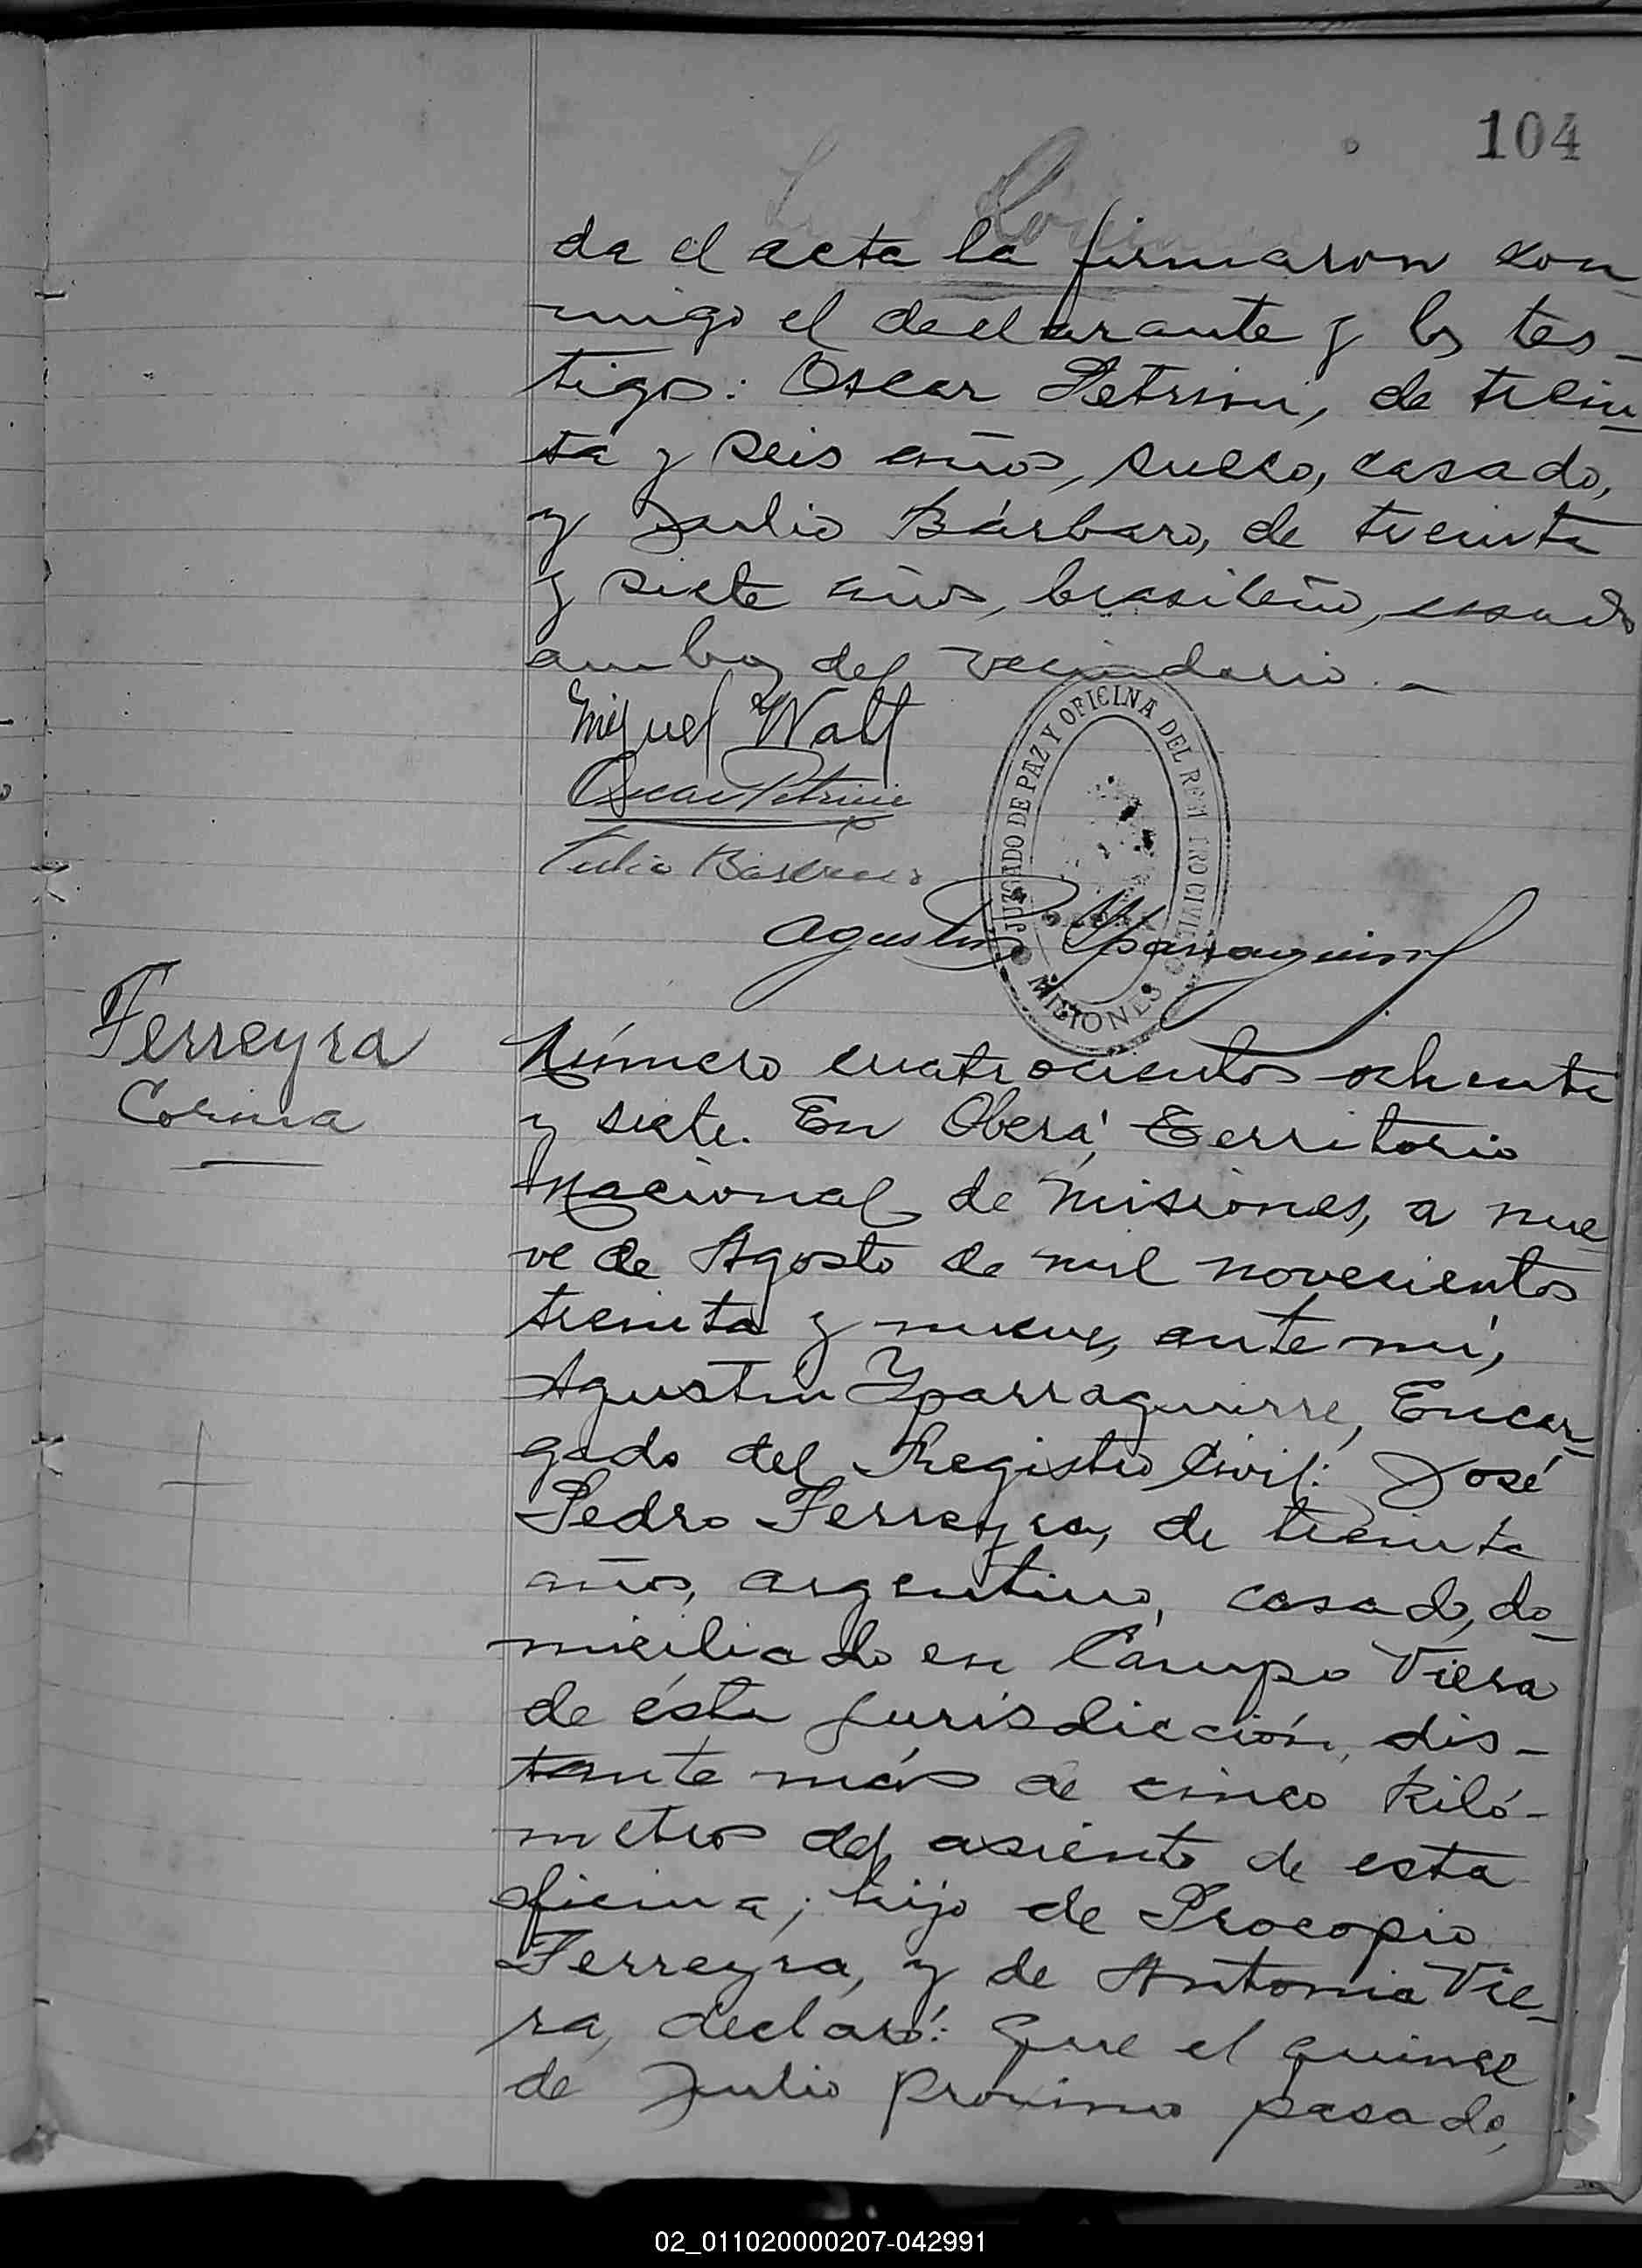 104
da el acta la firmaron con-
migo el declarante y los tes-
tigos: Oscar Petrini, de trein-
ta y seis años, sueco, casado,
y Julio Bárbaro, de treinta
y siete años, brasileño, casado
ambos del vecindario. -
Miguel Walt
Oscar Petrini
Julio Bárbaro
JUZGADO DE PAZ Y OFICINA DEL REGISTRO CIVIL
MISIONES
Agustín Yparraguirre
Ferreyra
Corina
Número cuatrocientos ochenta
y siete. En Oberá, Territorio
Nacional de Misiones, a nue-
ve de Agosto de mil novecientos
treinta y nueve, ante mí,
Agustín Yparraguirre, Encar-
gado del Registro Civil: José
Pedro Ferreyra, de treinta
años, argentino, casado, do-
miciliado en Campo Viera
de ésta jurisdicción, dis-
tante más de cinco kiló-
metros del asiento de esta
oficina; hijo de Procopio
Ferreyra, y de Antonia Vie-
ra, declaró: Que el quince
de Julio próximo pasado,
02_011020000207-042991